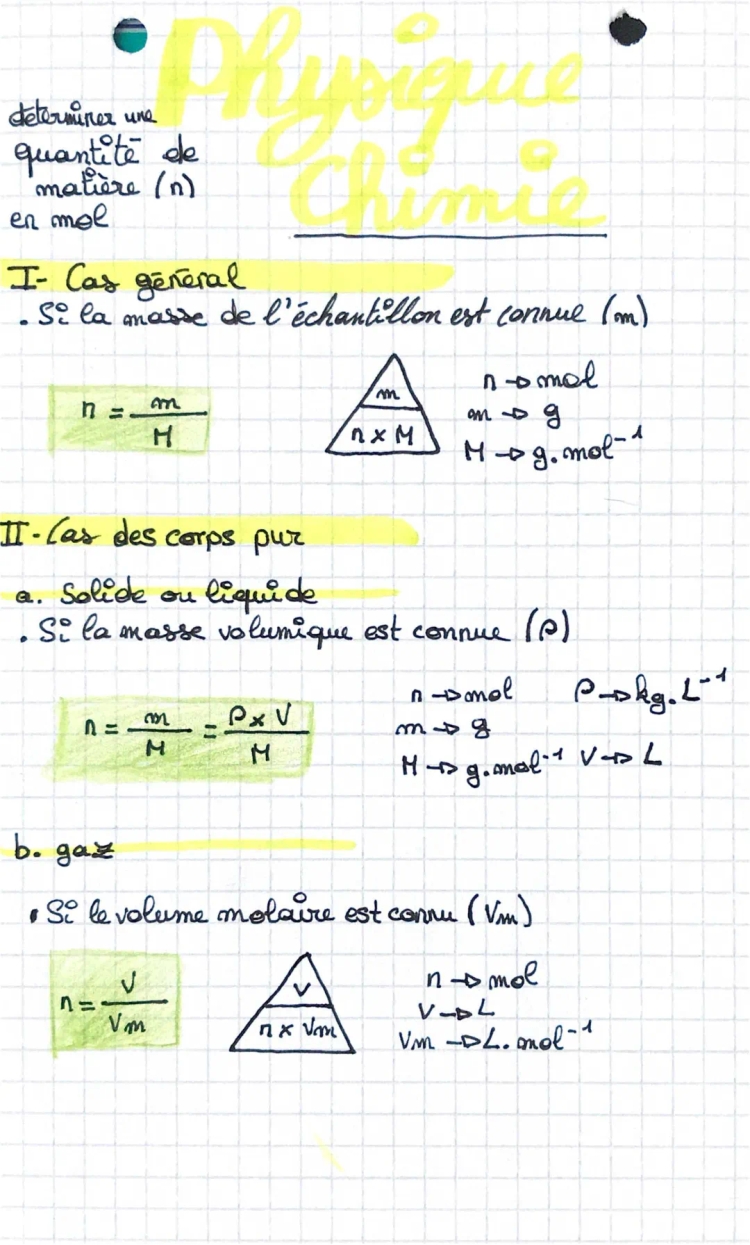 Physique
Chimie
determiner une
quantité de
matière (n)
en mol
I- Cas général
. Si la masse de l'échantillon est connue (m)
n = m / M
m
n x M
n → mol
m → g
M → g.mol⁻¹
II- Cas des corps pur
a. Solide ou liquide
. Si la masse volumique est connue (ρ)
n = m / M = ρ x V / M
n → mol
m → g
M → g.mol⁻¹
ρ → kg.L⁻¹
V → L
b. gaz
. Si le volume molaire est connu (Vm)
n = V / Vm
V
n x Vm
n → mol
V → L
Vm → L.mol⁻¹